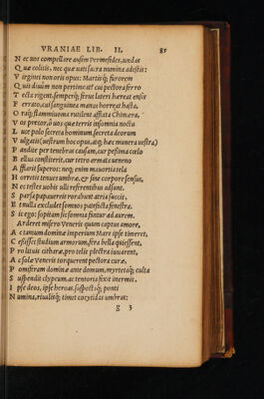 VRANIAE LIB. II. 81
N ec uos compellare ausim Permessides, undæ
Q uæ colitis, nec quæ uati sacra numina adestis:
V irginei non oris opus: Martisq; furorem
Q uis duim non pertimeat? cui pectora ferro
T ecta rigent, semperq; ferus lateri hæreat ensis
F errato, cui sanguinea manus horreat hasta,
O raq; flammiuoma rutilent afflata Chimæra.
V os precor, ô uos quæ terris insomnia noctu
L uce polo secreta hominum, secreta deorum
V ulgatis (uestrum hoc opus, atq; hæc munera uestra)
P andite per tenebras causam, cur pessima cœlo
B ellus constiterit, cur tetro armata ueneno
A fflarit superos: neq; enim mauortia tela
H orruit tenues umbræ, & sine corpore sensus,
N os testes uobis ulli referentibus adsunt.
S parsa papauereis rorabunt atria succis,
E t nulla excludet somnos patefacta fenestra.
S ic ego: sopitam sic somnia fantur ad aurem.
Arderet misero Veneris quum captus amore,
A c tantum dominæ imperium Mars ipse timeret,
C episset studium armorum, fera bella quiessent.
P ro lituis citharæ, pro telis plectra iuuarent,
A c solæ Veneris torquerent pectora curæ,
P omsiram dominæ ante domum, myrtetaq; culta
S uspendit clypeum, ac tentoria fixit inermis.
I pse deos, ipse heroas, suspectaq; ponti
N umina, riualesq; timet cocytidas umbras:
g 3